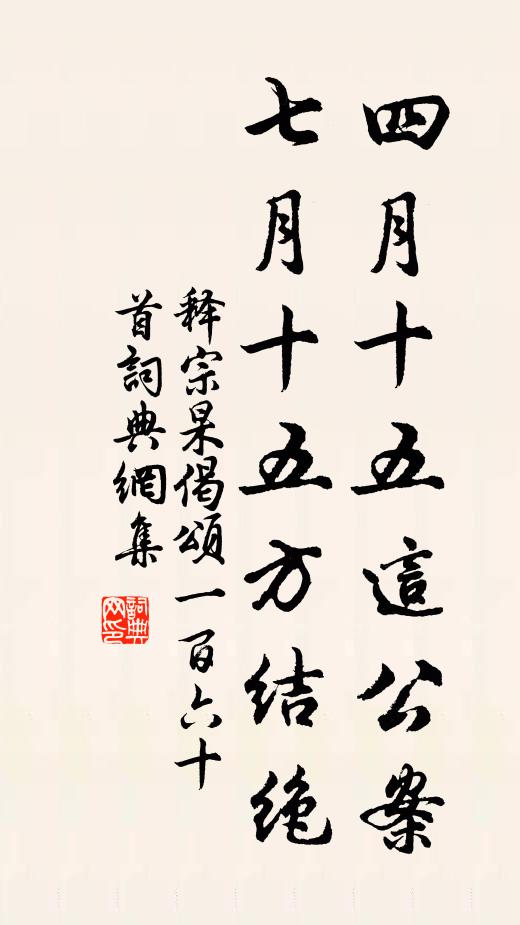 四月十五這公案
七月十五方结绝
释宗杲偈頌一百六十
首詞典網集
詞典
网印